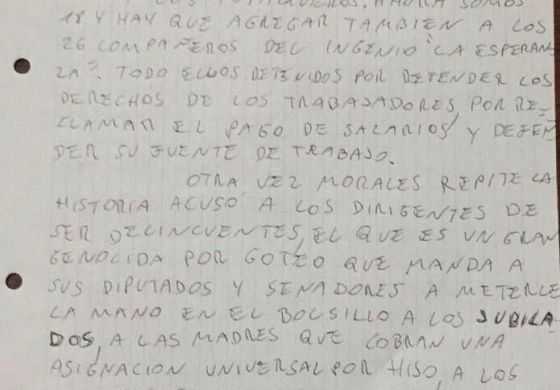 TUPAQUEROS. AHORA SOMOS
18 Y HAY QUE AGREGAR TAMBIEN A LOS
26 COMPAÑEROS DEL INGENIO "LA ESPERAN
ZA". TODO ELLOS DETENIDOS POR DEFENDER LOS
DERECHOS DE LOS TRABAJADORES, POR RE-
CLAMAR EL PAGO DE SALARIOS Y DEFEN
DER SU FUENTE DE TRABAJO.
OTRA VEZ MORALES REPITE LA
HISTORIA ACUSO A LOS DIRIGENTES DE
SER DELINCUENTES, EL QUE ES UN GRAN
GENOCIDA POR GOTEO QUE MANDA A
SUS DIPUTADOS Y SENADORES A METERLE
LA MANO EN EL BOLSILLO A LOS JUBILA
DOS, A LAS MADRES QUE COBRAN UNA
ASIGNACION UNIVERSAL POR HIJO, A LOS